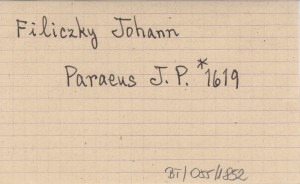 Filiczky Johann
Paraeus J. P. *1619
BT/055/1852